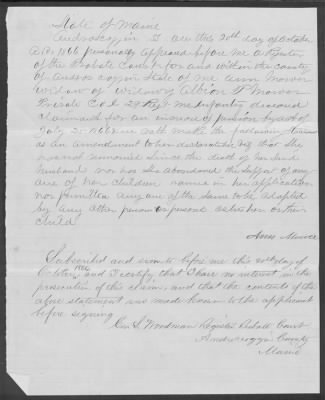 State of Maine
Androscoggin SS on the 20th day of October
A.D. 1866 personally appeared before me a Register
of the Probate Court for and within the county
of Androscoggin State of Me Ann Mower
Widow of Albion T Mower
Private Co I 29 Regt Me Infantry deceased
claimant for an increase of pension by act of
July 25 1866 on oath make the following
as an amendment to her declaration that she
remained since the death of her said
husband nor has she abandoned the support of any
one of her children names in her application
nor permitted any one of the same to be adopted
by any other person or persons as his her or their
child
Ann Mower
Subscribed and sworn to before me this 20th day of
October 1866 and I certify that I have no interest in the
prosecution of this claim, and that the contents of the
above statement was made known to the applicant
before signing
Geo S. Woodman Register Probate Court
Androscoggin County
Maine